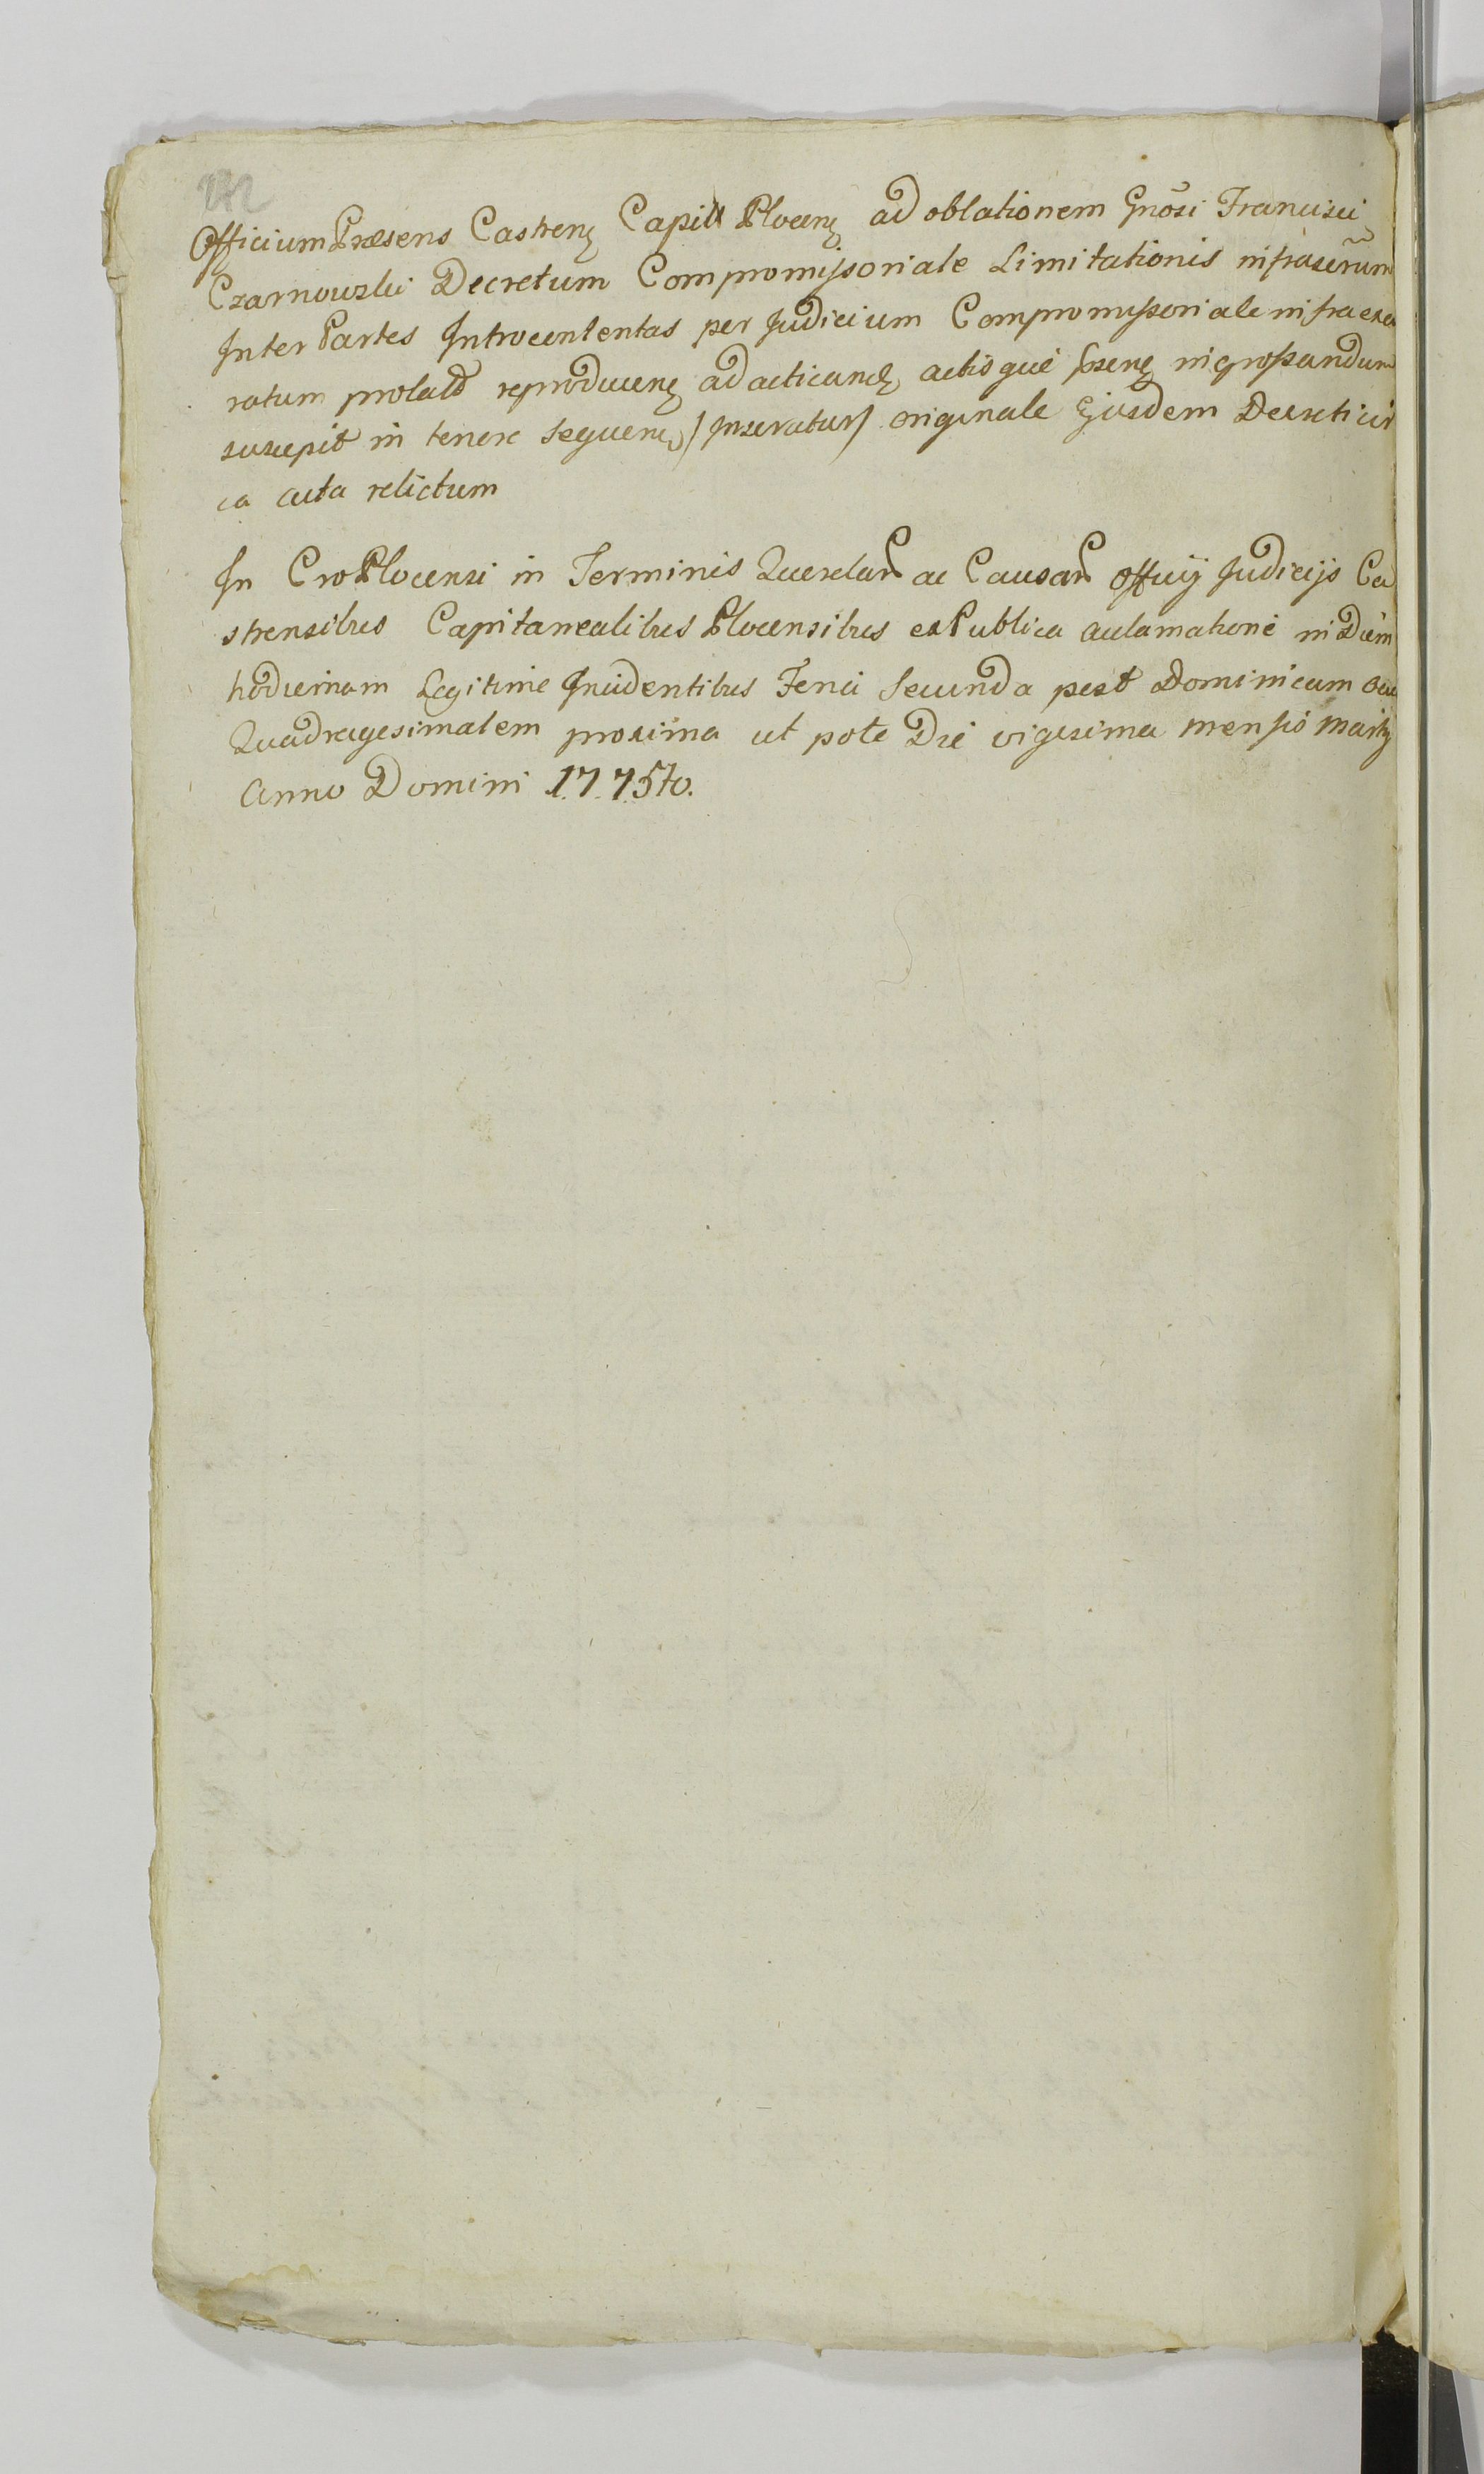 Officium Præsens Castren Capitt Plocen ad oblationem Gnosi Francisci
Czarnowski Decretum Compromissoriale Limitationis infrascrum
Inter Partes Introcontentas per Judicium Compromissoriale infra exa
ratum prolatt reproducen ad acticand actisque ingrossandum
suscepit in tenore sequen /Inseratur/ originale Ejusdem Decreti cir
ca acta relictum
In Cro Plocensi in Terminis Querelar ac Causar Officij Judicijs Ca
strensibus Capitanealibus Plocensibus ex Publica acclamatione in Diem
hodiernam Legitime Incidentibus Feria Secunda post Dominicam
Quadragesimalem proxima ut pote Die vigesima mensis Martij
Anno Domini 1775to.